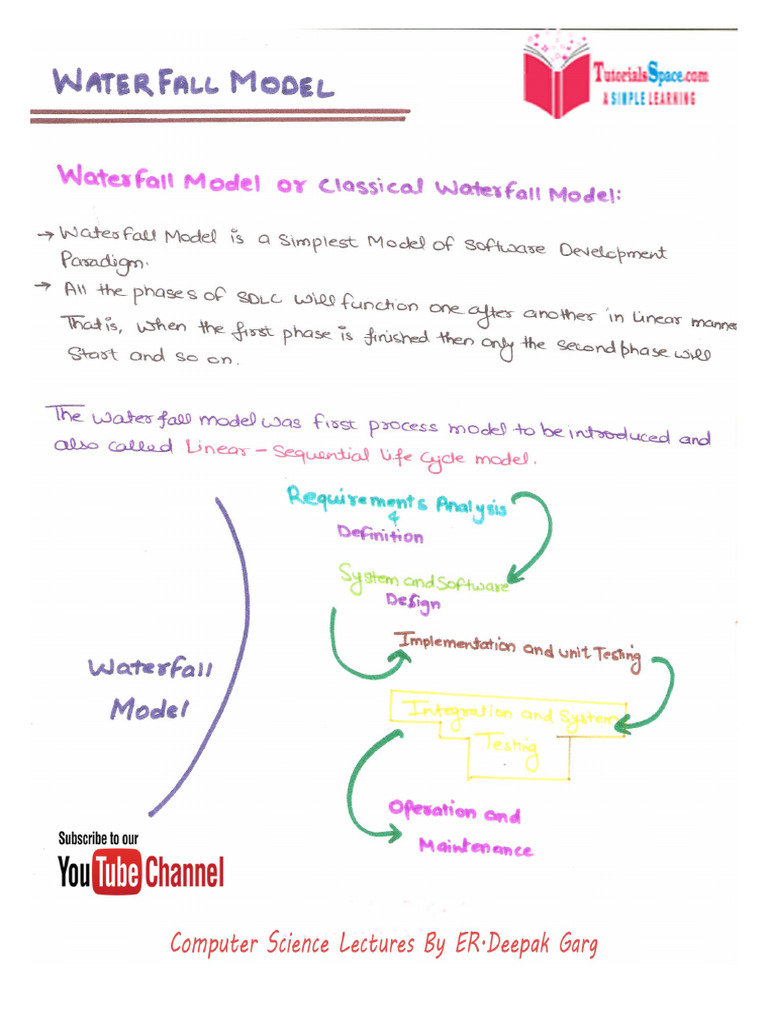 WATERFALL MODEL
TutorialsSpace.com
A SIMPLE LEARNING
Waterfall Model or Classical Waterfall Model:
→ Waterfall Model is a simplest Model of Software Development
Paradigm.
→ All the phases of SDLC will function one after another in linear manner
That is, when the first phase is finished then only the second phase will
Start and so on.
The waterfall model was first process model to be introduced and
also called Linear - Sequential life cycle model.
Requirements Analysis
&
Definition
System and Software
Design
Implementation and unit Testing
Waterfall
Model
Integration and System
Testig
Operation and
Maintenance
Subscribe to our
YouTube Channel
Computer Science Lectures By ER.Deepak Garg